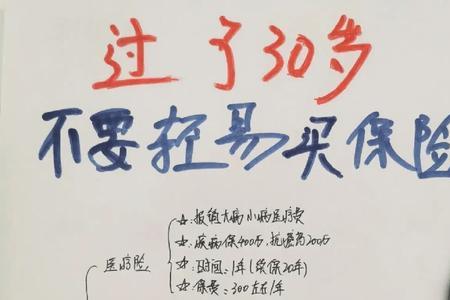 过了30岁
不要轻易买保险
医疗险
☆:报销大病小病医疗费
☆:疾病保400万,抗癌药200万
☆:时间:1年(续保20年)
☆:保费:300左右/年